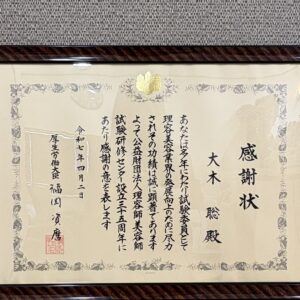 感謝状
大木 聡 殿
あなたは多年にわたり試験委員として
理容美容業界の発展向上のために尽力
されその功績は誠に顕著であります
よって公益財団法人理容師美容師
試験研修センター設立三十五周年に
あたり感謝の意を表します
令和七年四月二日
厚生労働大臣 福岡資麿